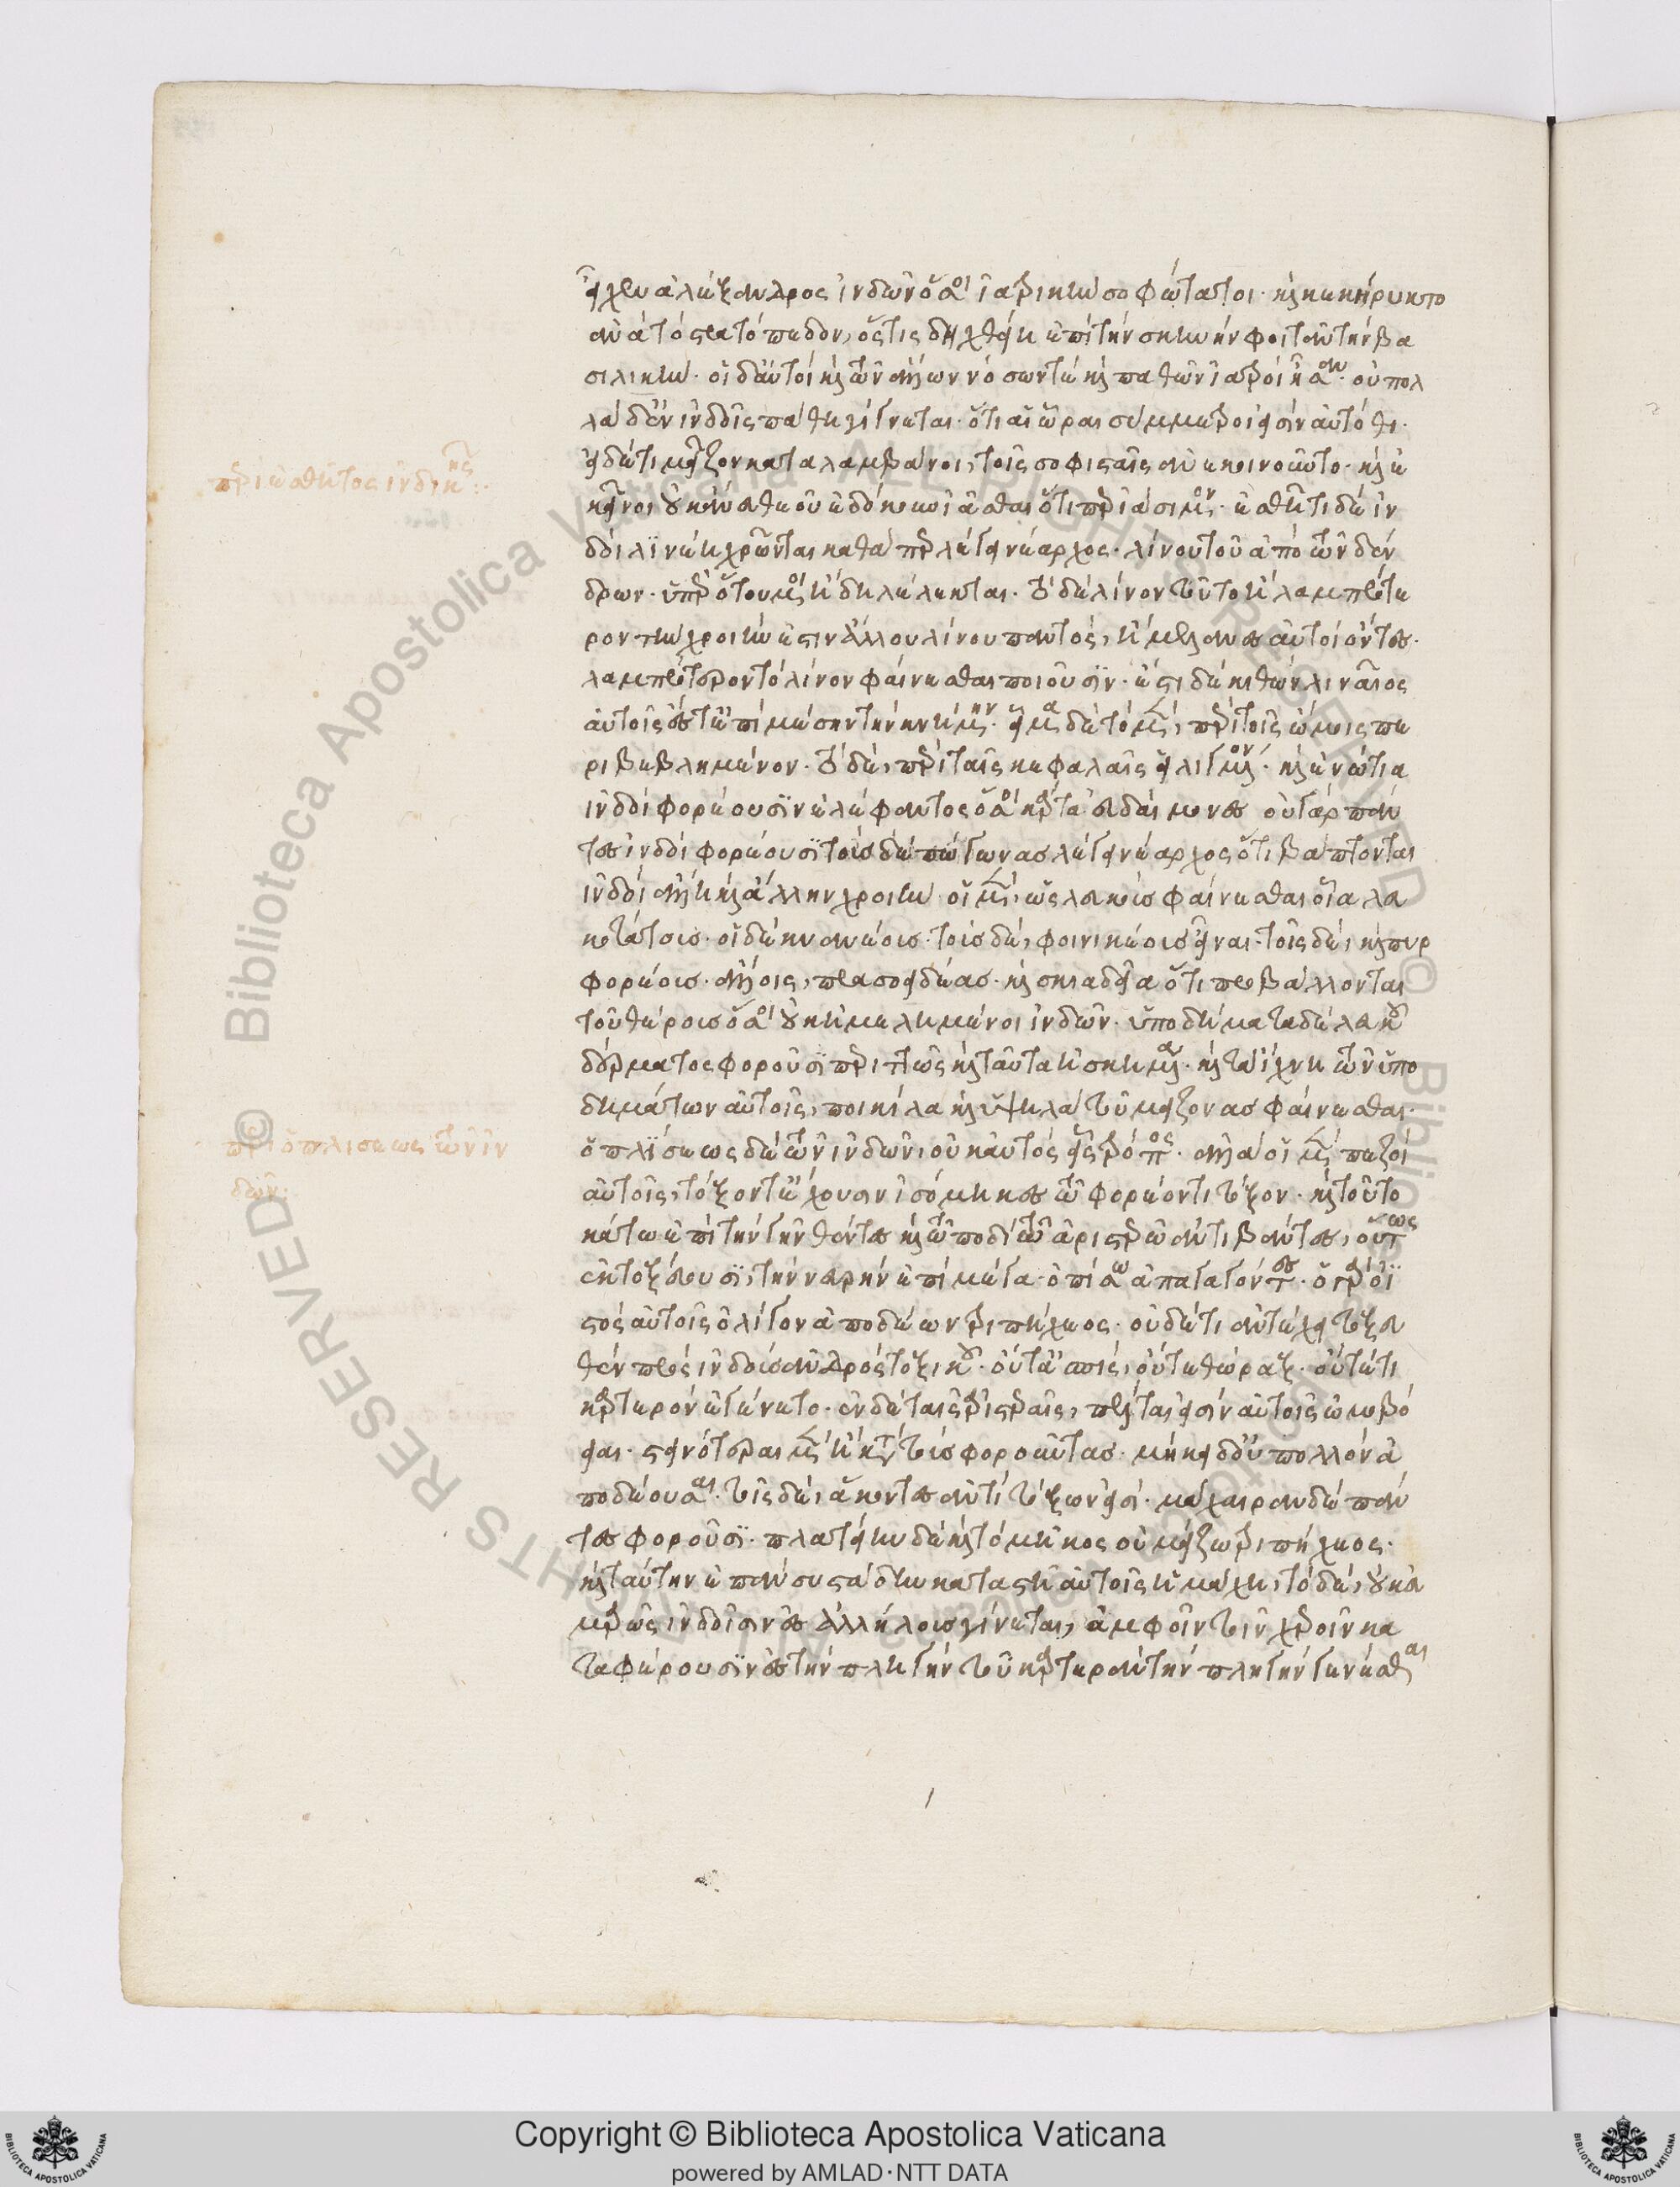 εἶχεν ἀλέξανδρος ἰνδῶν ὅσοι ἰατρικὴν σοφώτατοι· καὶ κεκήρυκτο
ἀνὰ τὸ στρατόπεδον, ὅστις δηχθείη ἐπὶ τὴν σκηνὴν φοιτᾶν τὴν βα
σιλικήν· οἱ δ' αὐτοὶ καὶ τῶν ἄλλων νόσων τὲ καὶ παθῶν ἰατροὶ ἦσαν· οὐ πολ
λὰ δ' ἐν ἰνδοῖς πάθη γίγνεται· ὅτι αἱ ὧραι σύμμετροι εἰσὶν αὐτόθι·
εἰ δέ τι μεῖζον καταλαμβάνοι, τοῖς σοφισταῖς ἀνεκοινοῦντο· καὶ ἐ
κεῖνοι οὐκ ἄνευ θεοῦ ἐδόκεον ἰᾶσθαι ὅτι περ ἰάσιμον· ἐσθῆτι δὲ ἰν
δοὶ λινέη χρῶνται καθάπερ λέγει νέαρχος· λίνου τοῦ ἀπὸ τῶν δέν
δρων· ὑπὲρ ὅτου μοι ἤδη λέλεκται· τὸ δὲ λίνον τοῦτο ἢ λαμπρότε
ρον τὴν χροιήν ἐστιν ἄλλου λίνου παντός, ἢ μέλανες αὐτοὶ ὄντες·
λαμπρότερον τὸ λίνον φαίνεσθαι ποιοῦσιν· ἔστι δὲ κιθὼν λίναιος
αὐτοῖς ἔς τε ἐπὶ μέσην τὴν κνήμην· εἷμα δὲ τὸ μὲν, περὶ τοῖς ὤμοις πε
ριβεβλημένον· τὸ δὲ, περὶ ταῖς κεφαλαῖς εἱλιγμένον· καὶ ἐνώτια
ἰνδοὶ φορέουσιν ἐλέφαντος ὅσοι κάρτα εὐδαίμονες οὐ γὰρ πάν
τες ἰνδοὶ φορέουσι τοὺς δὲ πώγωνας λέγει νέαρχος ὅτι βάπτονται
ἰνδοὶ ἄλλη καὶ ἄλλην χροιήν· οἱ μὲν, ὡς λευκοὺς φαίνεσθαι οἵα λευ
κοτάτους· οἱ δὲ κυανέους· τοὺς δὲ, φοινικέους εἶναι· τοῖς δὲ, καὶ πορ
φορέους· ἄλλοις, πρασοειδέας· καὶ σκιάδεια ὅτι προβάλλονται
τοῦ θέρους ὅσοι οὐκ ἠμελημένοι ἰνδῶν· ὑποδήματα δὲ λευκοῦ
δέρματος φοροῦσι περιττῶς καὶ ταῦτα ἠσκημένα· καὶ τὰ ἴχνη τῶν ὑπο
δημάτων αὐτοῖς, ποικίλα καὶ ὑψηλὰ τοῦ μείζονας φαίνεσθαι·
ὁπλίσεως δὲ τῶν ἰνδῶν, οὐκ αὑτὸς εἷς τρόπος· ἀλλὰ οἱ μὲν πεζοὶ
αὐτοῖς, τόξον τε ἔχουσιν ἰσόμηκες τῷ φορέοντι τόξον· καὶ τοῦτο
κάτω ἐπὶ τὴν γῆν θέντες καὶ τῷ ποδὶ τῷ ἀριστερῷ ἀντιβάντες, οὕτως
ἐκτοξεύουσι, τὴν νευρὴν ἐπὶ μέγα ὀπίσω ἀπαγαγόντες· ὁ γὰρ ὀϊ
στὸς αὐτοῖς ὀλίγον ἀποδέων τριπήχεος· οὐδέ τι ἀντέχει τοξευ
θὲν πρὸς ἰνδοῦ ἀνδρὸς τοξικοῦ· οὔτε ἀσπὶς, οὔτε θώραξ· οὔτέ τι
καρτερὸν ἐγένετο· ἐν δὲ ταῖς ἀριστεραῖς, πέλται εἰσὶν αὐτοῖς ὠμοβό
ειαι· στεινότεραι μὲν ἢ κατὰ τοὺς φοροῦντας· μήκει δ' οὐ πολλὸν ἀ
ποδέουσαι· τοῖς δὲ, ἄκοντες ἀντὶ τόξων εἰσί· μάχαιραν δὲ πάν
τες φοροῦσι· πλατείην δὲ καὶ τὸ μῆκος οὐ μείζω τριπήχεος·
καὶ ταύτην ἐπὰν συστάδην καταστῆ αὐτοῖς ἡ μάχη, τὸ δὲ, οὐκ εὐ
μαρῶς ἰνδοῖσιν ἐς ἀλλήλους γίνεται, ἀμφοῖν τοῖν χεροῖν κα
ταφέρουσιν ἐς τὴν πληγὴν τοῦ καρτερὰν τὴν πληγὴν γενέσθαι
περὶ ἐσθῆτος ἰνδικῆς:·
περὶ ὁπλίσεως τῶν ἰν
δῶν:
Copyright © Biblioteca Apostolica Vaticana
powered by AMLAD·NTT DATA